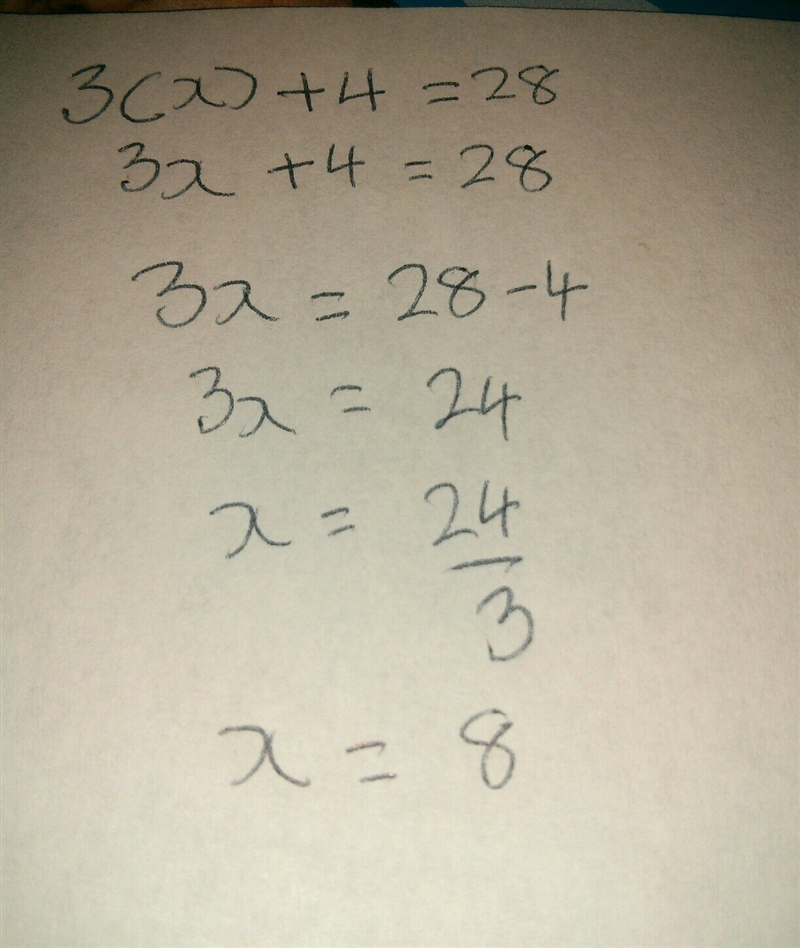 3(x) + 4 = 28
3x + 4 = 28
3x = 28 - 4
3x = 24
x = 24/3
x = 8